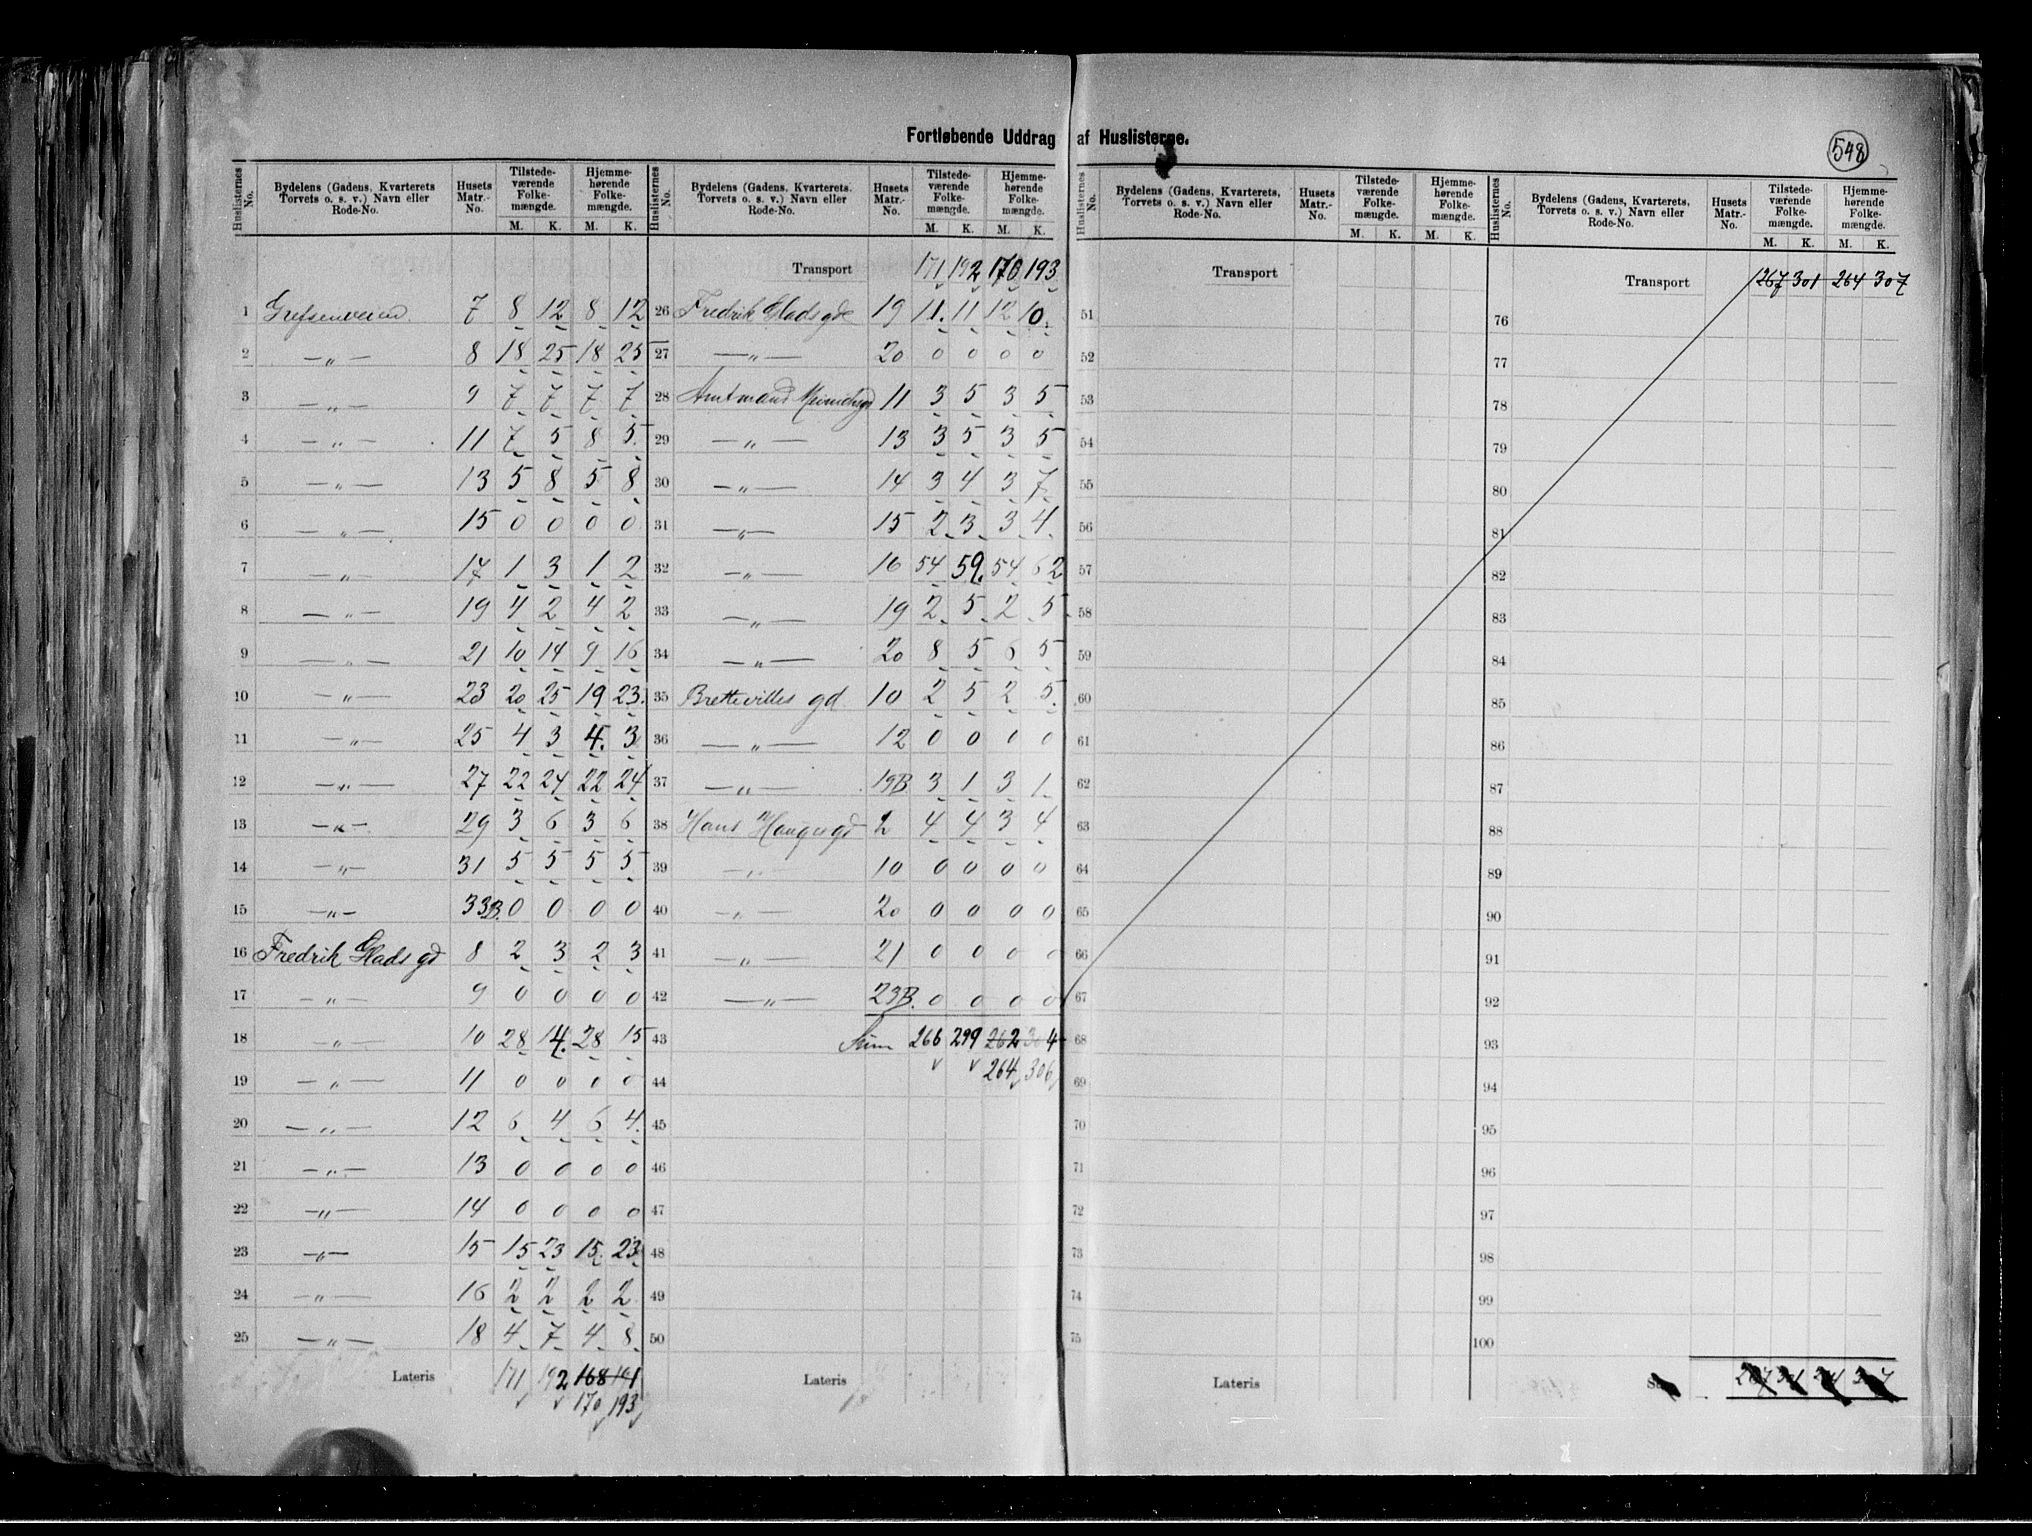 Fortløbende Uddrag af Huslisterne.
548
Huslisternes No. | Bydelens (Gadens, Kvarterets Torvets o. s. v.) Navn eller Rode-No. | Husets Matr.-No. | Tilstede-værende Folke-mængde. M. K. | Hjemme-hørende Folke-mængde. M. K.
1 Grefsenveien 7 8 12 8 12
2 —„— 8 18 25 18 25
3 —„— 9 7 7 7 7
4 —„— 11 7 5 8 5
5 —„— 13 5 8 5 8
6 —„— 15 0 0 0 0
7 —„— 17 1 3 1 2
8 —„— 19 4 2 4 2
9 —„— 21 10 14 9 16
10 —„— 23 20 25 19 23
11 —„— 25 4 3 4 3
12 —„— 27 22 24 22 24
13 —„— 29 3 6 3 6
14 —„— 31 5 5 5 5
15 —„— 33B. 0 0 0 0
16 Fredrik Glads gd 8 2 3 2 3
17 —„— 9 0 0 0 0
18 —„— 10 28 14. 28 15
19 —„— 11 0 0 0 0
20 —„— 12 6 4 6 4
21 —„— 13 0 0 0 0
22 —„— 14 0 0 0 0
23 —„— 15 15 23 15 23
24 —„— 16 2 2 2 2
25 —„— 18 4 7 4 8
Lateris 171 192 168 191
170 193
Huslisternes No. | Bydelens (Gadens, Kvarterets. Torvets o. s. v.) Navn eller Rode-No. | Husets Matr.-No. | Tilstede-værende Folke-mængde. M. K. | Hjemme-hørende Folke-mængde. M. K.
Transport 171 192 170 193
26 Fredrik Glads gde 19 11. 11 12 10
27 —„— 20 0 0 0 0
28 Amtmand 11 3 5 3 5
29 —„— 13 3 5 3 5
30 —„— 14 3 4 3 7
31 —„— 15 2 3 3 4
32 —„— 16 54 59. 54 62
33 —„— 19 2 5 2 5
34 —„— 20 8 5 6 5
35 Brettevilles gd 10 2 5 2 5
36 —„— 12 0 0 0 0
37 —„— 19B 3 1 3 1
38 Hans Hauges gd 2 4 4 3 4
39 —„— 10 0 0 0 0
40 —„— 20 0 0 0 0
41 —„— 21 0 0 0 0
42 —„— 23B. 0 0 0 0
43 Sum 266 299 262 304
44 264 306
45
46
47
48
49
50
Lateris
Huslisternes No. | Bydelens (Gadens, Kvarterets, Torvets o. s. v.) Navn eller Rode-No. | Husets Matr.-No. | Tilstede-værende Folke-mængde. M. K. | Hjemme-hørende Folke-mængde. M. K.
Transport
51
52
53
54
55
56
57
58
59
60
61
62
63
64
65
66
67
68
69
70
71
72
73
74
75
Lateris
Huslisternes No. | Bydelens (Gadens, Kvarterets, Torvets o. s. v.) Navn eller Rode-No. | Husets Matr.-No. | Tilstede-værende Folke-mængde. M. K. | Hjemme-hørende Folke-mængde. M. K.
Transport 267 301 264 307
76
77
78
79
80
81
82
83
84
85
86
87
88
89
90
91
92
93
94
95
96
97
98
99
100